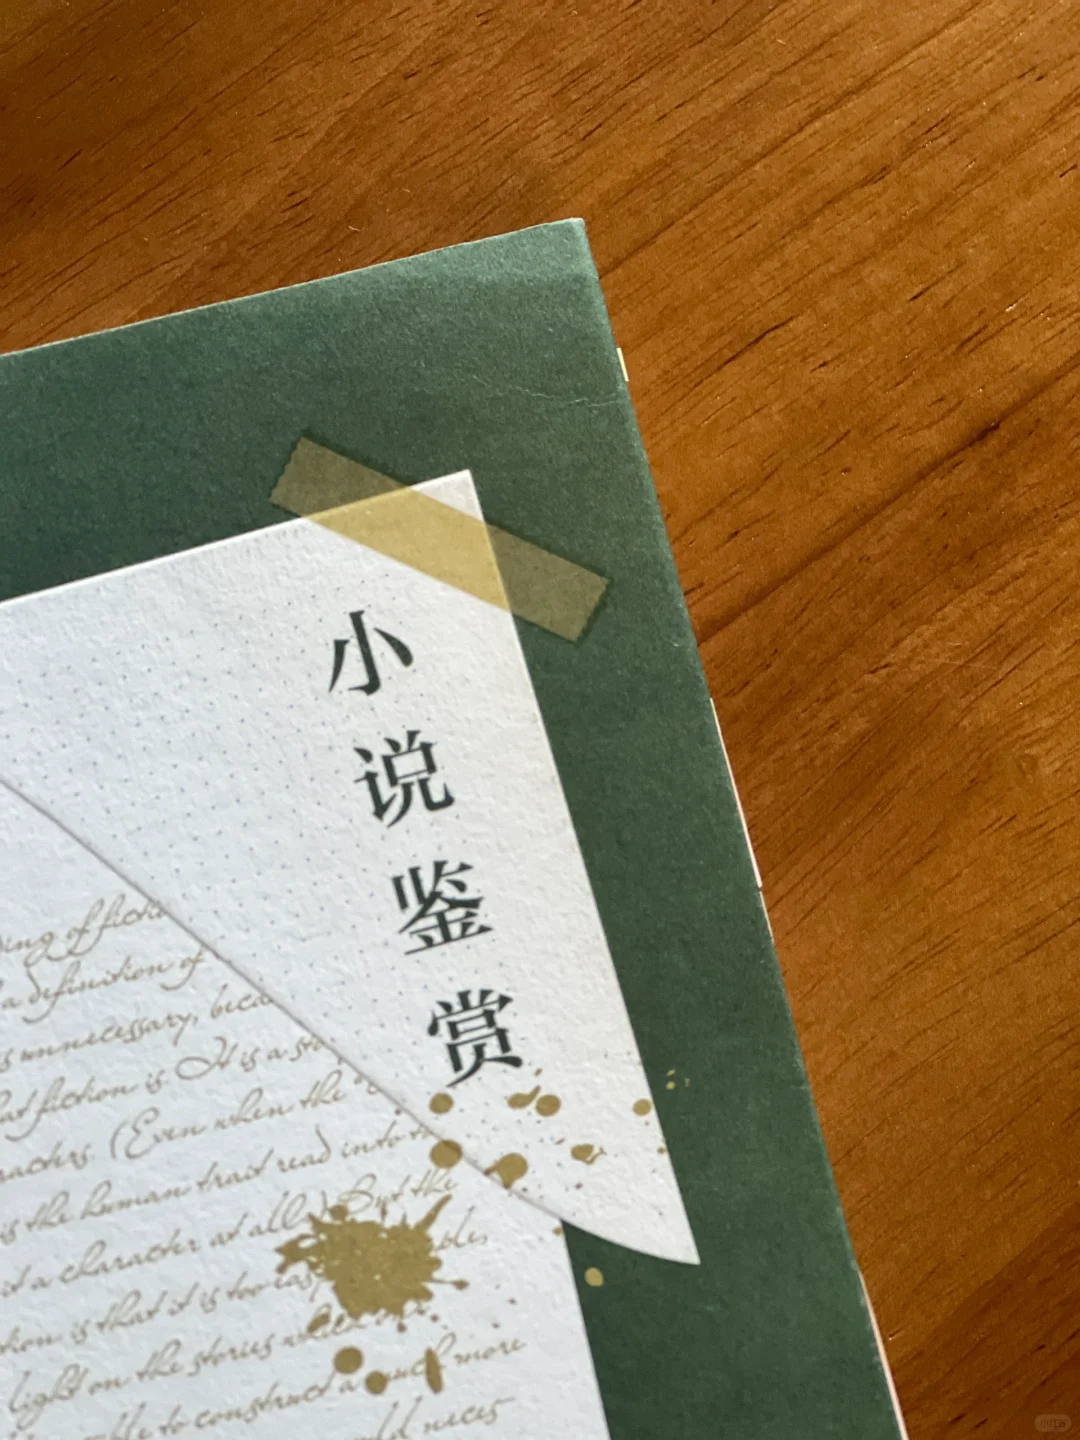 小说鉴赏
of fictio
a definition of
unnecessary, beca
fiction is. It is a sto
racters. (Even when the
is the human trait read into th
it a character at all.) But the
tion is that it is too eas
light on the stories
to construct a much more